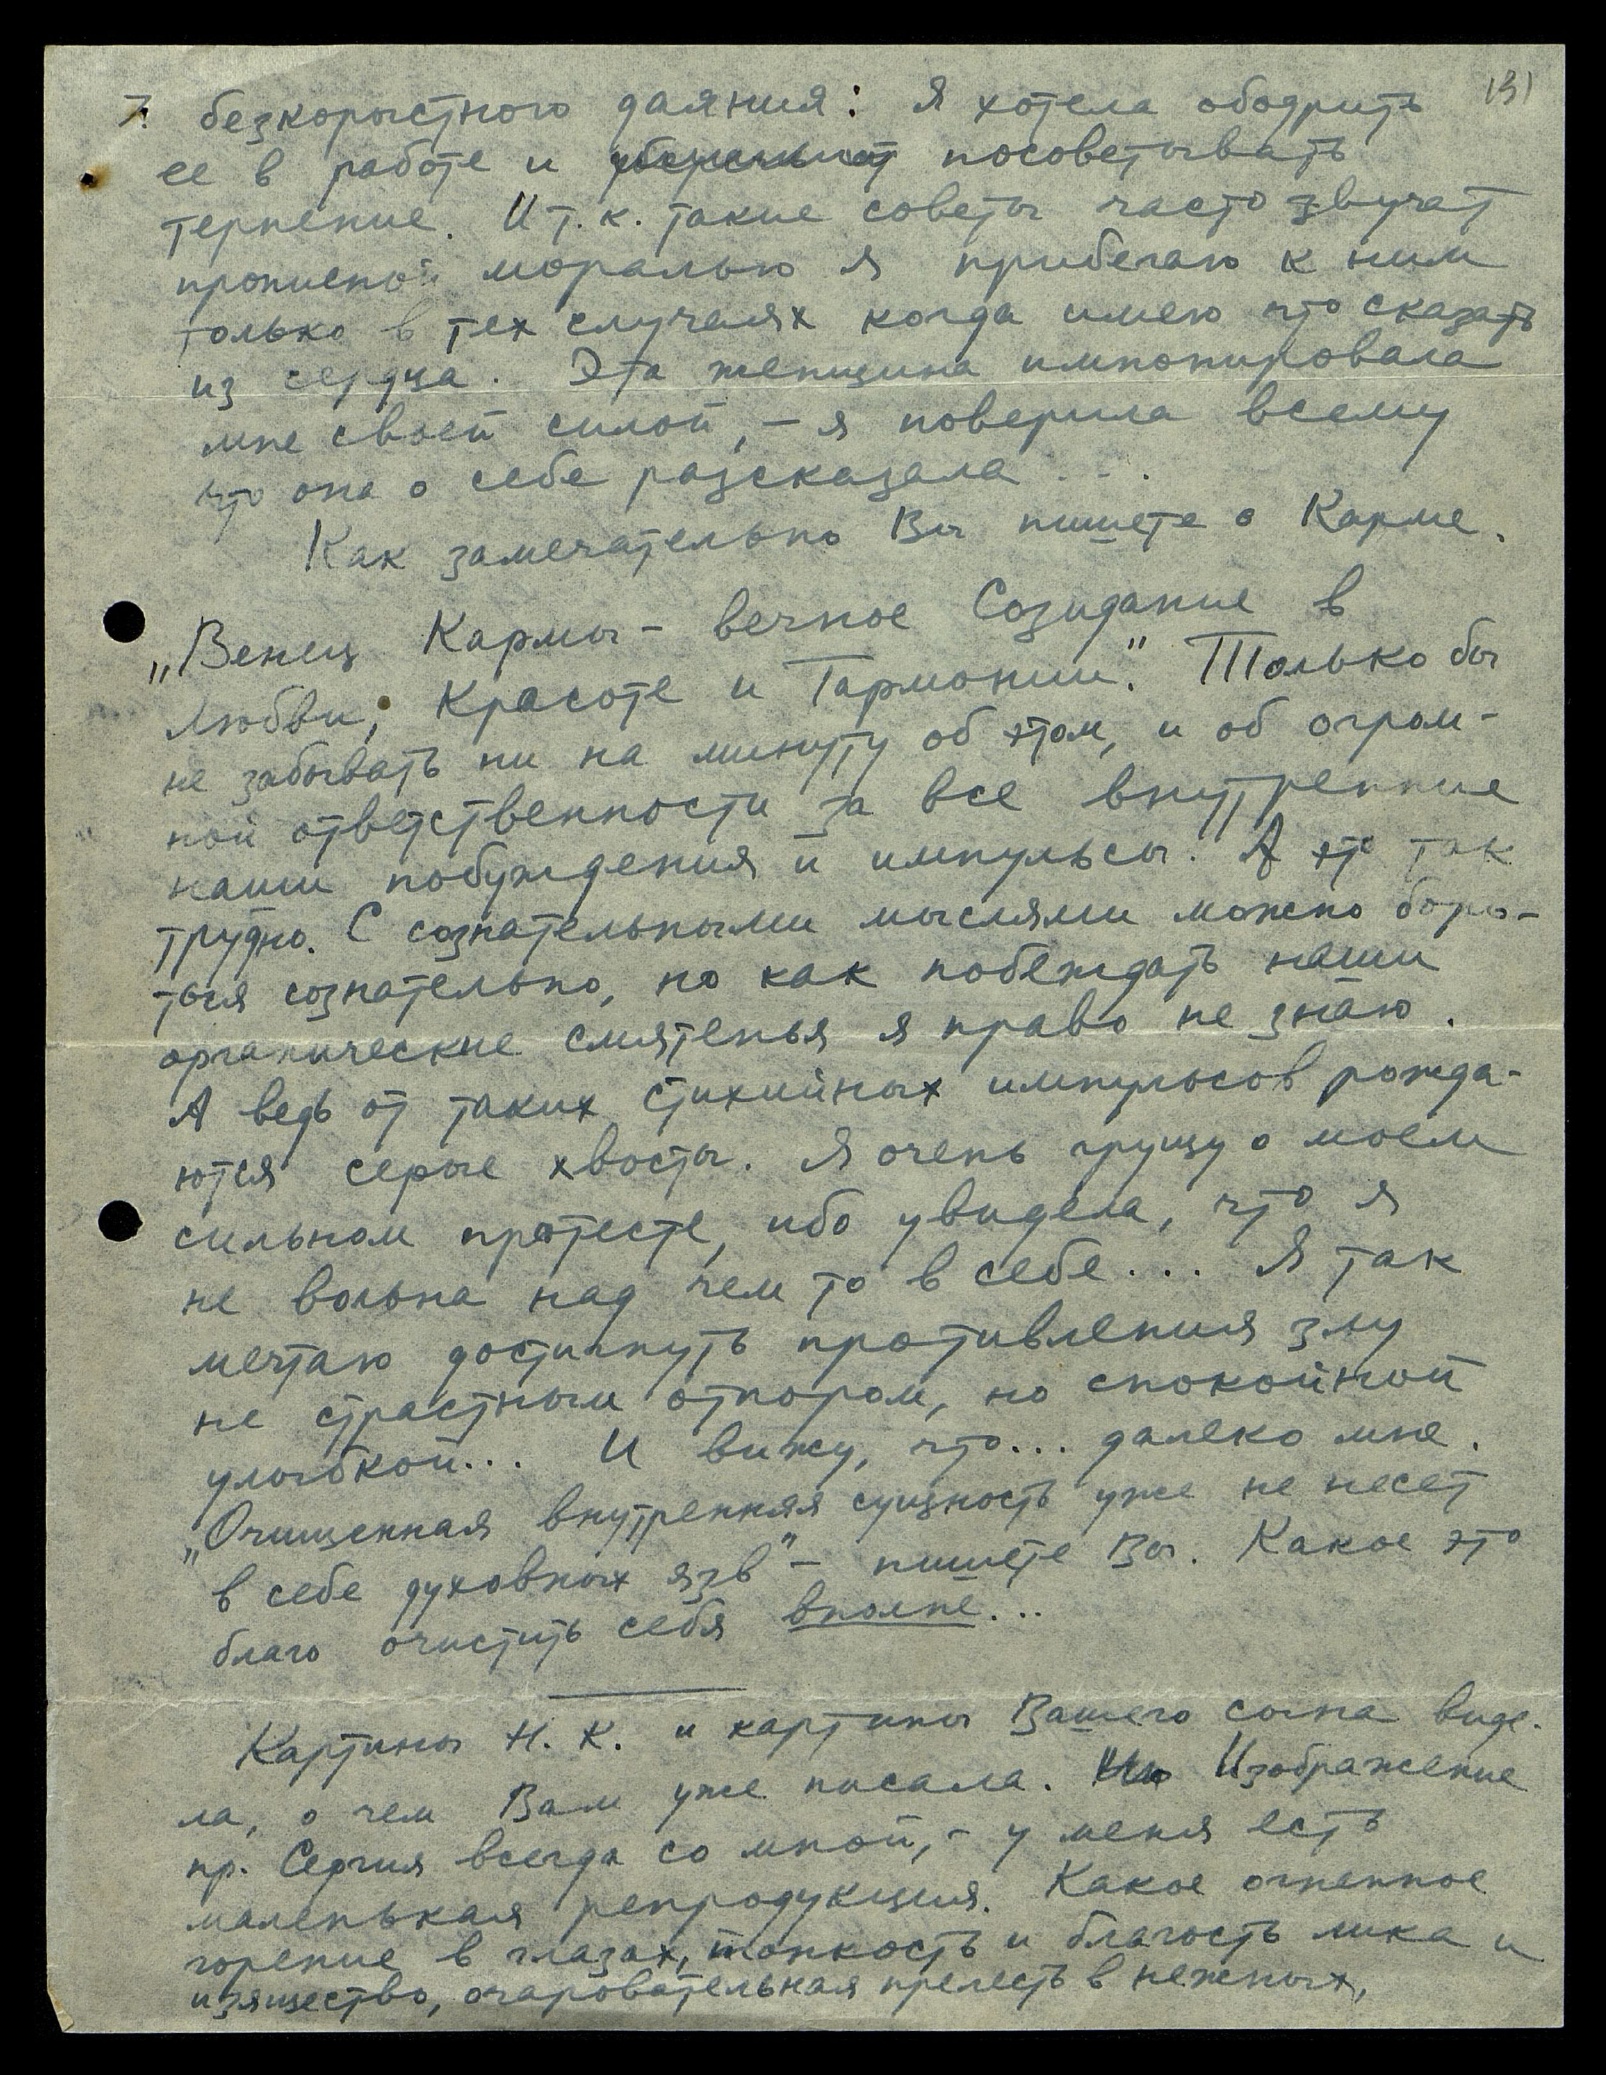 7. безкорыстного даяния: я хотела ободрить 131
ее в работе и посоветывать
терпение. И т.к. такие советы часто звучат
прописной моралью я прибегаю к ним
только в тех случаях когда имею что сказать
из сердца. Эта женщина импонировала
мне своей силой, – я поверила всему
что она о себе разсказала . . .
Как замечательно Вы пишете о Карме.
„Венец Кармы – вечное Созидание в
Любви, Красоте и Гармонии." Только бы
не забывать ни на минуту об этом, и об огром-
ной ответственности за все внутренние
наши побуждения и импульсы. А это так
трудно. С сознательными мыслями можно боро-
ться сознательно, но как побеждать наши
органические смятенья я право не знаю.
А ведь от таких стихийных импульсов рожда-
ются серые хвосты. Я очень грущу о моем
сильном протесте, ибо увидела, что я
не вольна над чем то в себе... Я так
мечтаю достигнуть противления злу
не страстным отпором, но спокойной
улыбкой... И вижу, что... далеко мне.
„Очищенная внутренняя сущность уже не несет
в себе духовных язв" – пишете Вы. Какое это
благо очистить себя вполне...
Картины Н. К. и картины Вашего сына виде-
ла, о чем Вам уже писала. Изображение
пр. Сергия всегда со мной, – у меня есть
маленькая репродукция. Какое огненное
горение в глазах, тонкость и благость лика и
изящество, очаровательная прелесть в нежных,